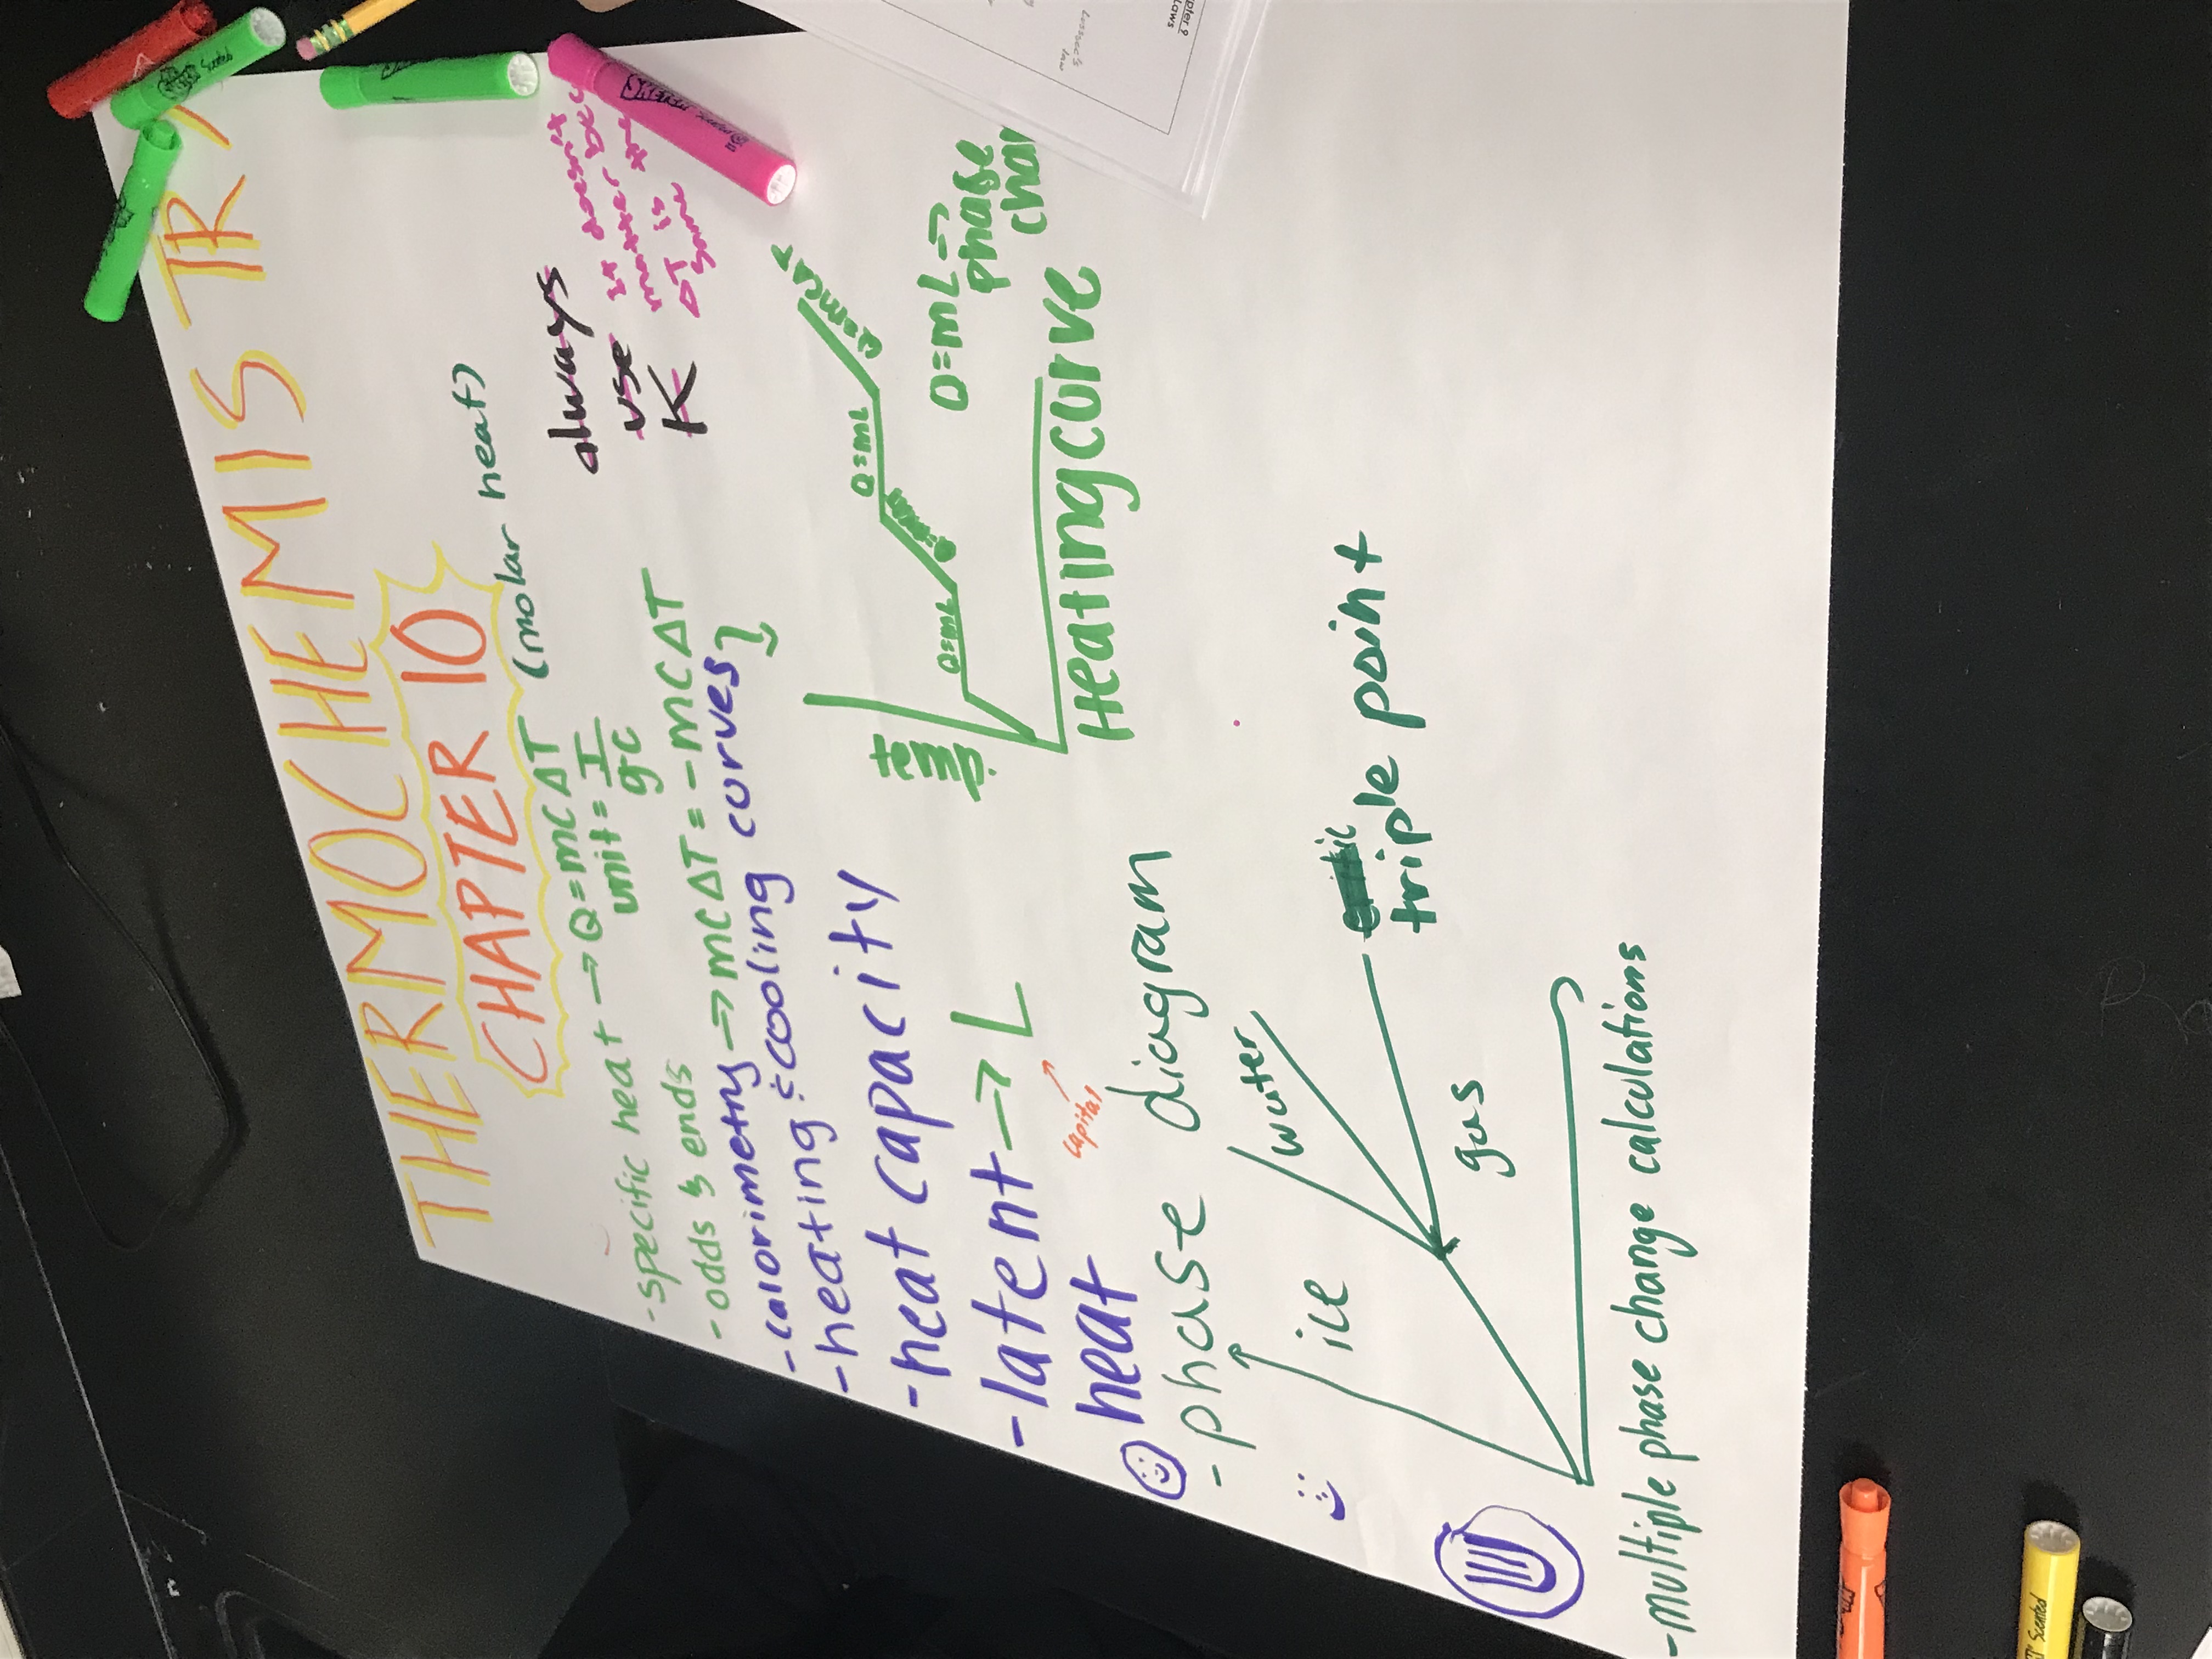 THERMOCHEMISTRY
CHAPTER 10
-specific heat → Q=mCΔT (molar heat)
unit= J
g°C
-odds & ends
-calorimetry → mCΔT = -mCΔT
-heating & cooling curves
-heat capacity
-latent → L
heat
capital
always
use
K
it doesn't
matter
ΔT is
same
temp.
Q=mL
Q=mL
Q=mCΔT
Q=mL →
phase
chan
Heating curve
-phase diagram
ice
water
gas
triple point
-multiple phase change calculations
Scented